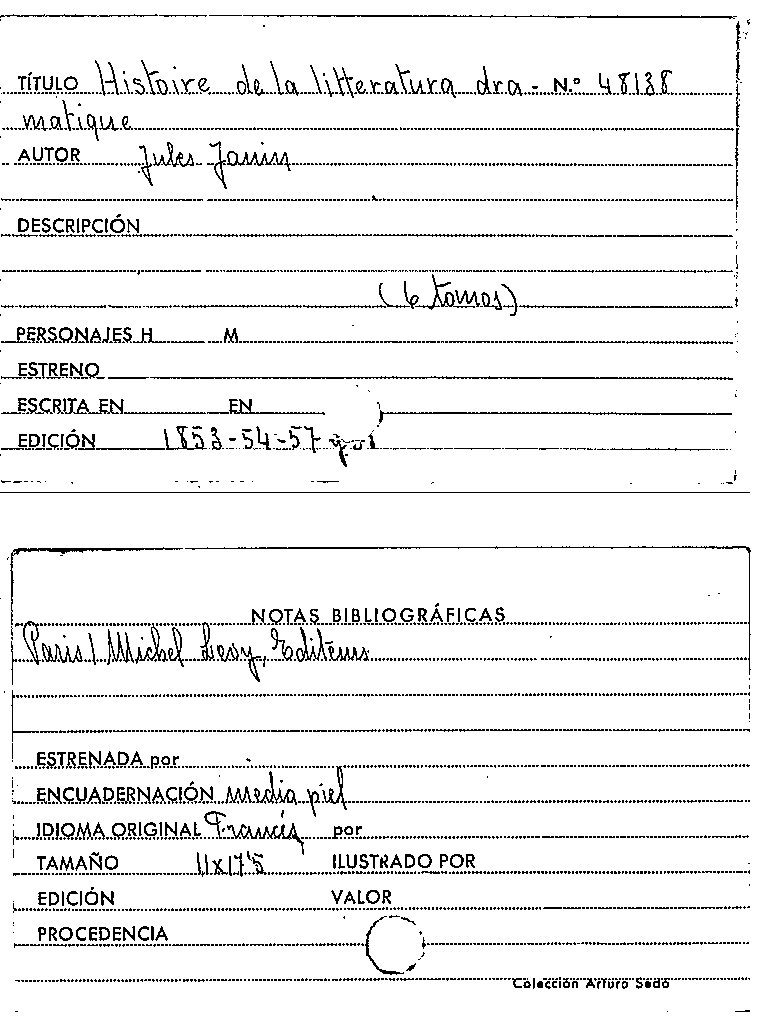 TÍTULO Histoire de la litteratura dra- N.º 48138
matique
AUTOR Jules Janin
DESCRIPCIÓN
(6 tomos)
PERSONAJES H M
ESTRENO
ESCRITA EN EN
EDICIÓN 1853-54-57
NOTAS BIBLIOGRÁFICAS
Paris / Michel Levy, Editeurs
ESTRENADA por
ENCUADERNACIÓN media piel
IDIOMA ORIGINAL Francés por
TAMAÑO 11x17'5 ILUSTRADO POR
EDICIÓN VALOR
PROCEDENCIA
Colección Arturo Sedó